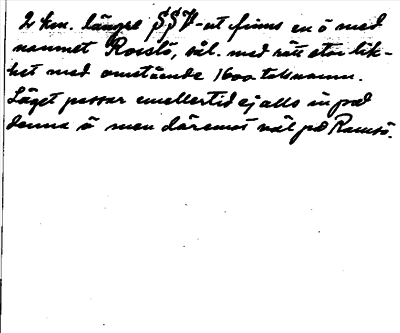 2 km. längre SSV-ut finns en ö med
namnet Roesö, väl. med rätt stor lik-
het med omstående 1600 talsnamn.
Läget passar emellertid ej alls in på
denna ö men däremot väl på Ramsö.